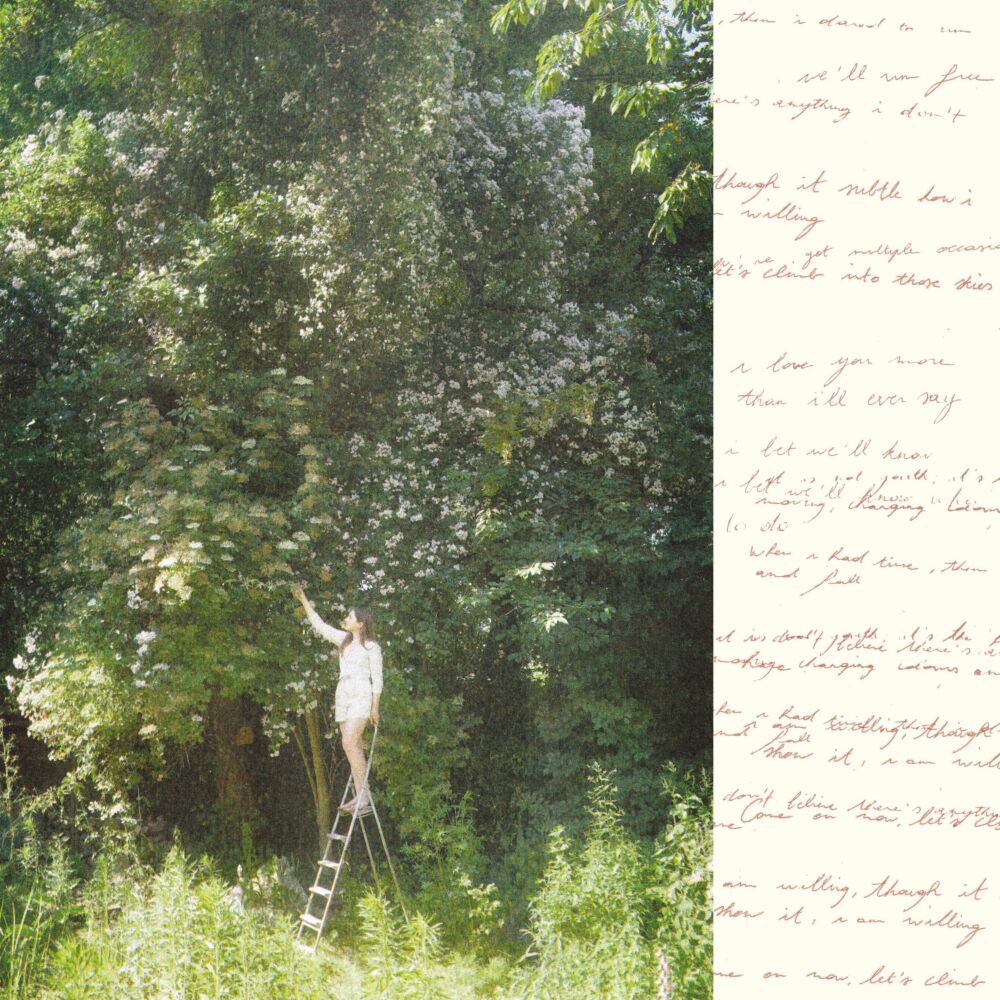 , then i dared to run
we'll run free
ere's anything i don't
though it subtle how i
willing
got multiple occasio
let's climb into those skies
i love you more
than i'll ever say
i bet we'll know
i bet we'll know
moving, changing
to do
when i had time, then
and fall
it is youth, it's the
changing idioms an
willing, though
show it, i am will
don't believe there's anything
Come on now, let's cli
am willing, though it
show it, i am willing
me on now, let's climb